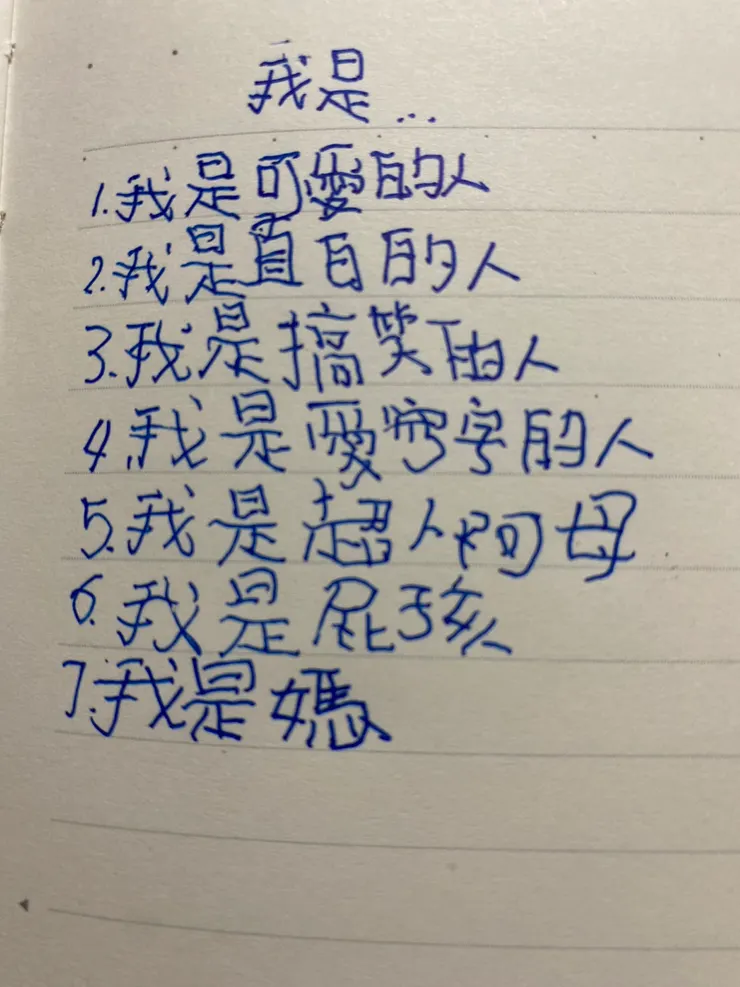 我是...
1.我是可愛的人
2.我是直白的人
3.我是搞笑的人
4.我是愛寫字的人
5.我是超人阿母
6.我是屁孩
7.我是媽